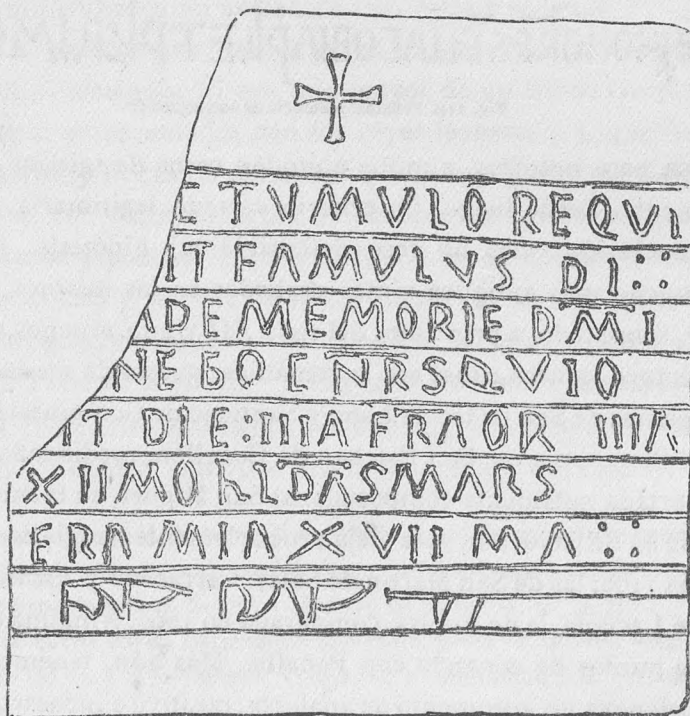 E TVMVLO REQVI
IT FAMVLVS DI ⁙
DE MEMORIE DMI
NEGO E NRS QVI O
IT DIE : IIIA FRAOR IIIA
XII MO KLDAS MARS
ERA MIA XVII MA ⁙